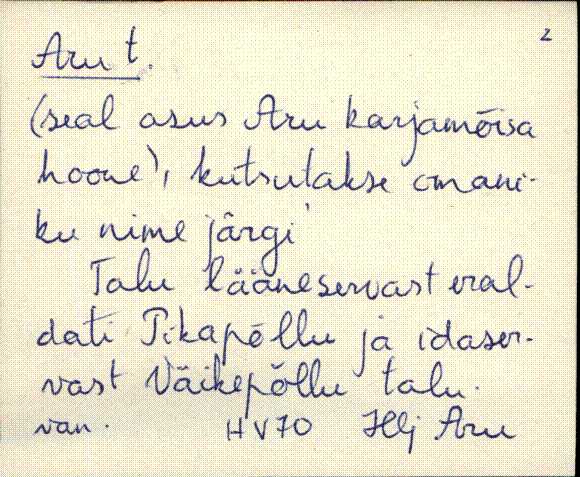 2
Aru t.
(seal asus Aru karjamõisa
hoone), kutsutakse omani-
ku nime järgi
Talu lääneservast eral-
dati Pikapõllu ja idaser-
vast Väikepõllu talu.
van. HV70 Hlj Aru